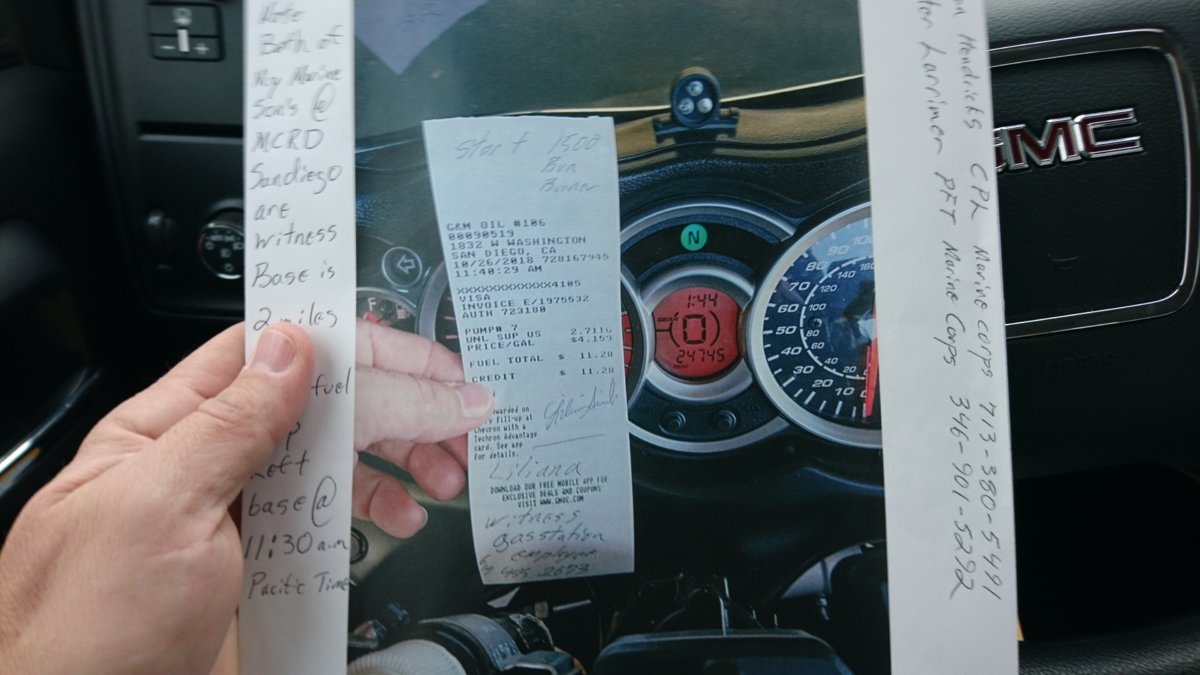 Note
Both of
My Marine
Son's @
MCRD
Sandiego
are
witness
Base is
2 miles
fuel
Left
base @
11:30 a.m
Pacific Time
Start 1500
Bun
Burner
G&M OIL #106
00090519
1832 W WASHINGTON
SAN DIEGO, CA
10/26/2018 728167945
11:40:29 AM
XXXXXXXXXXXX4105
VISA
INVOICE E/1975532
AUTH 723180
PUMP# 7
UNL SUP US 2.711G
PRICE/GAL $4.159
FUEL TOTAL $ 11.28
CREDIT $ 11.28
fill-up at
Chevron with a
Techron Advantage
card. See app
for details.
Liliana
DOWNLOAD OUR FREE MOBILE APP FOR
EXCLUSIVE DEALS AND COUPONS
VISIT WWW.GMOC.COM
witness
gasstation
employee
N
1:44
GEAR
(0)
24745
F
100
80 160
70 140
60 120
50 100
40 80
30 60
20
10
0
Hendricks CPL Marine corps 713-380-5491
Larrimer PFT Marine Corps 346-901-5292
GMC